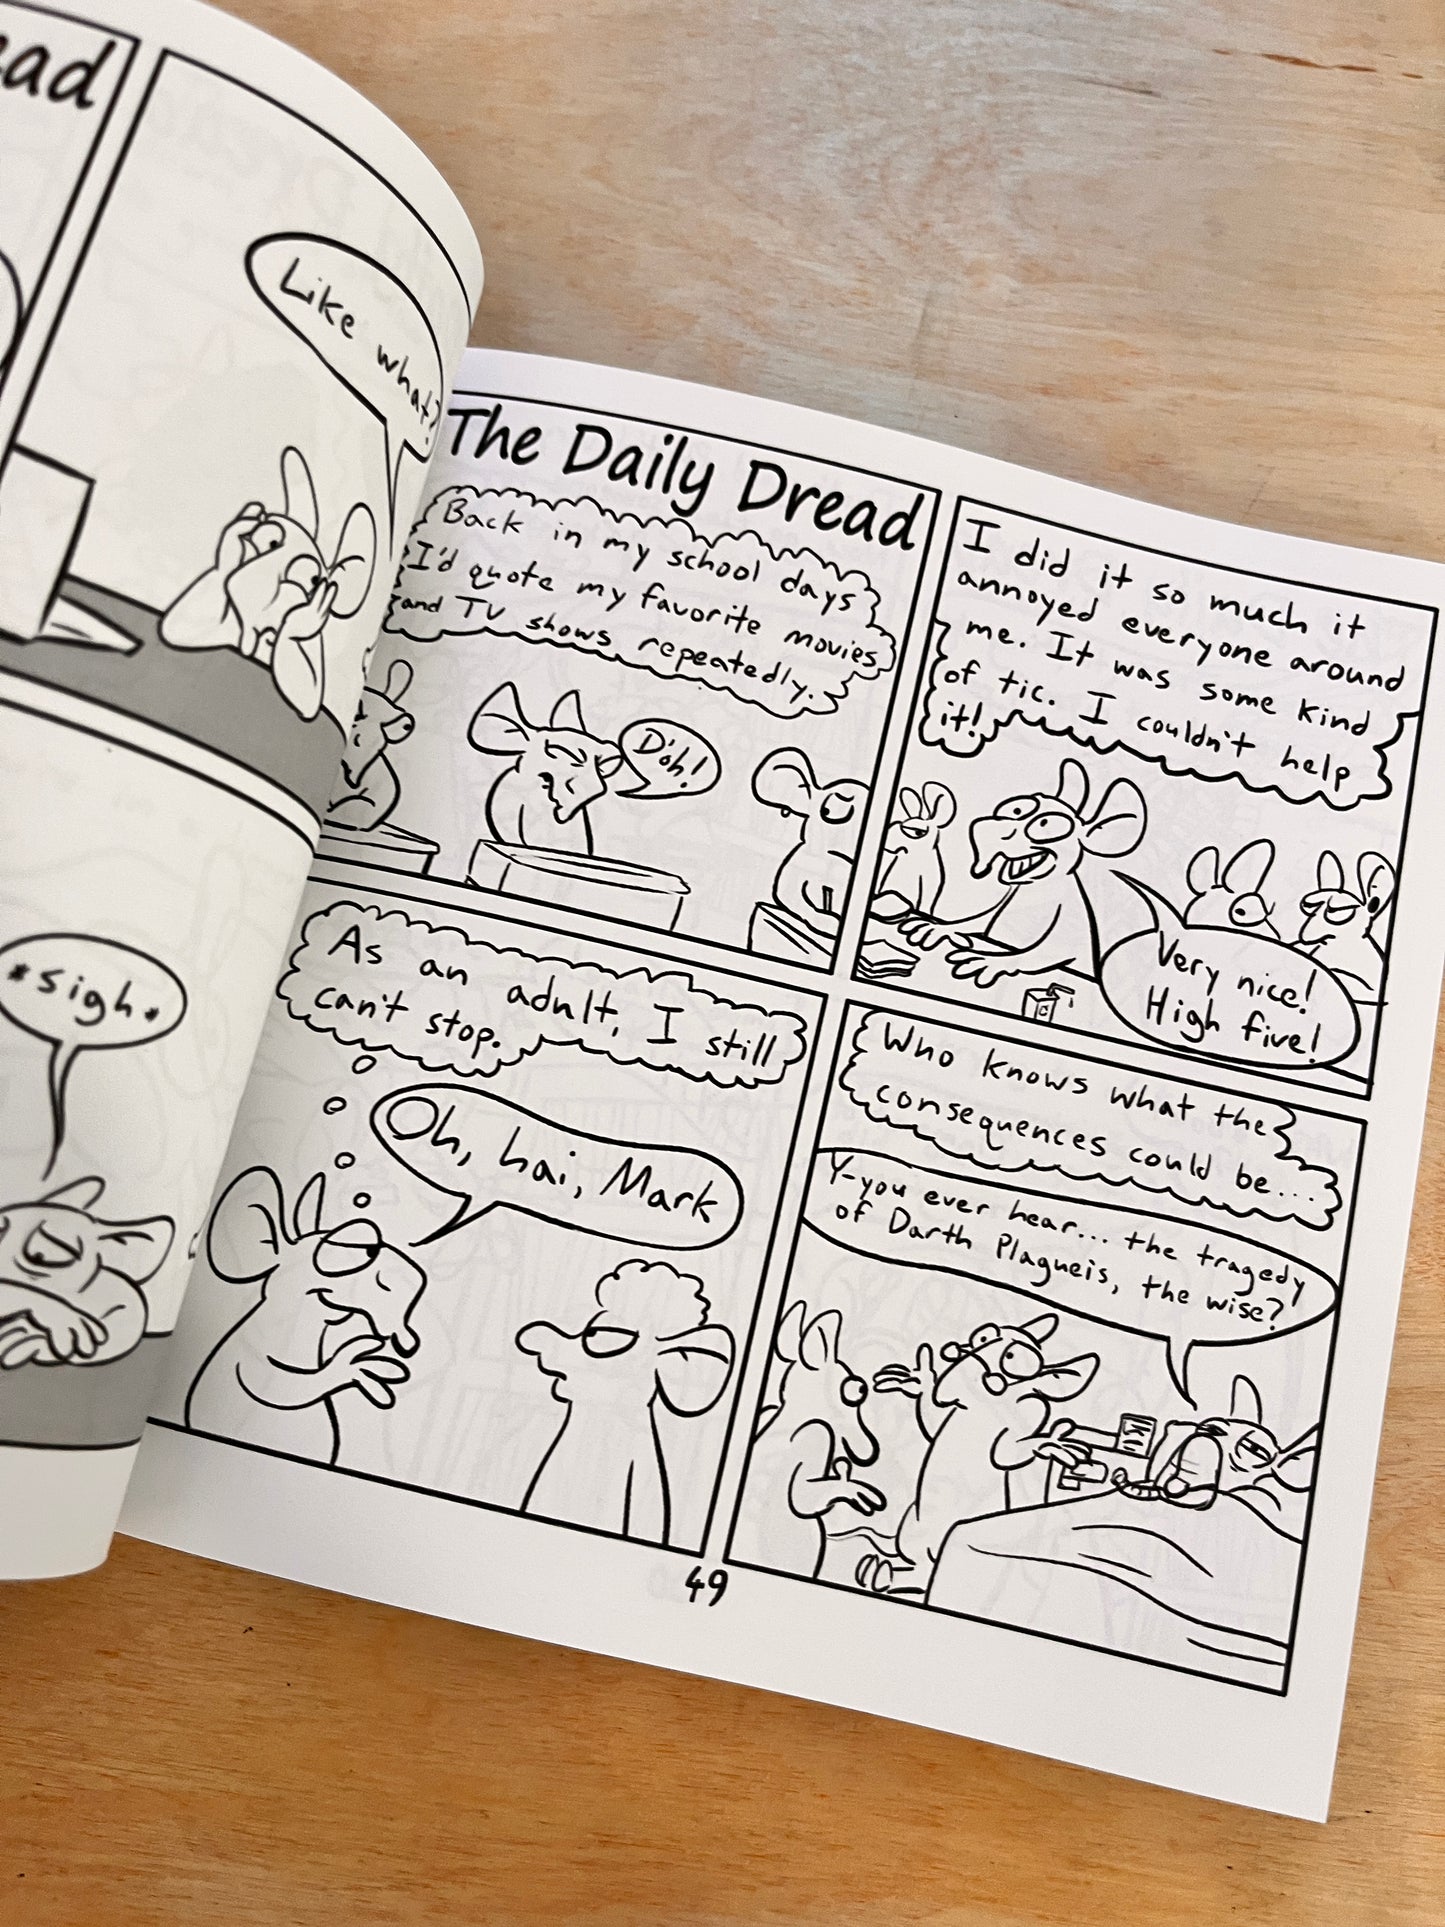 ead
Like what?
*sigh*
The Daily Dread
Back in my school days
I'd quote my favorite movies
and TV shows repeatedly.
D'oh!
I did it so much it
annoyed everyone around
me. It was some kind
of tic. I couldn't help
it!
Very nice!
High five!
As an adult, I still
can't stop.
Oh, hai, Mark
Who knows what the
consequences could be...
Y-you ever hear... the tragedy
of Darth Plagueis, the wise?
49